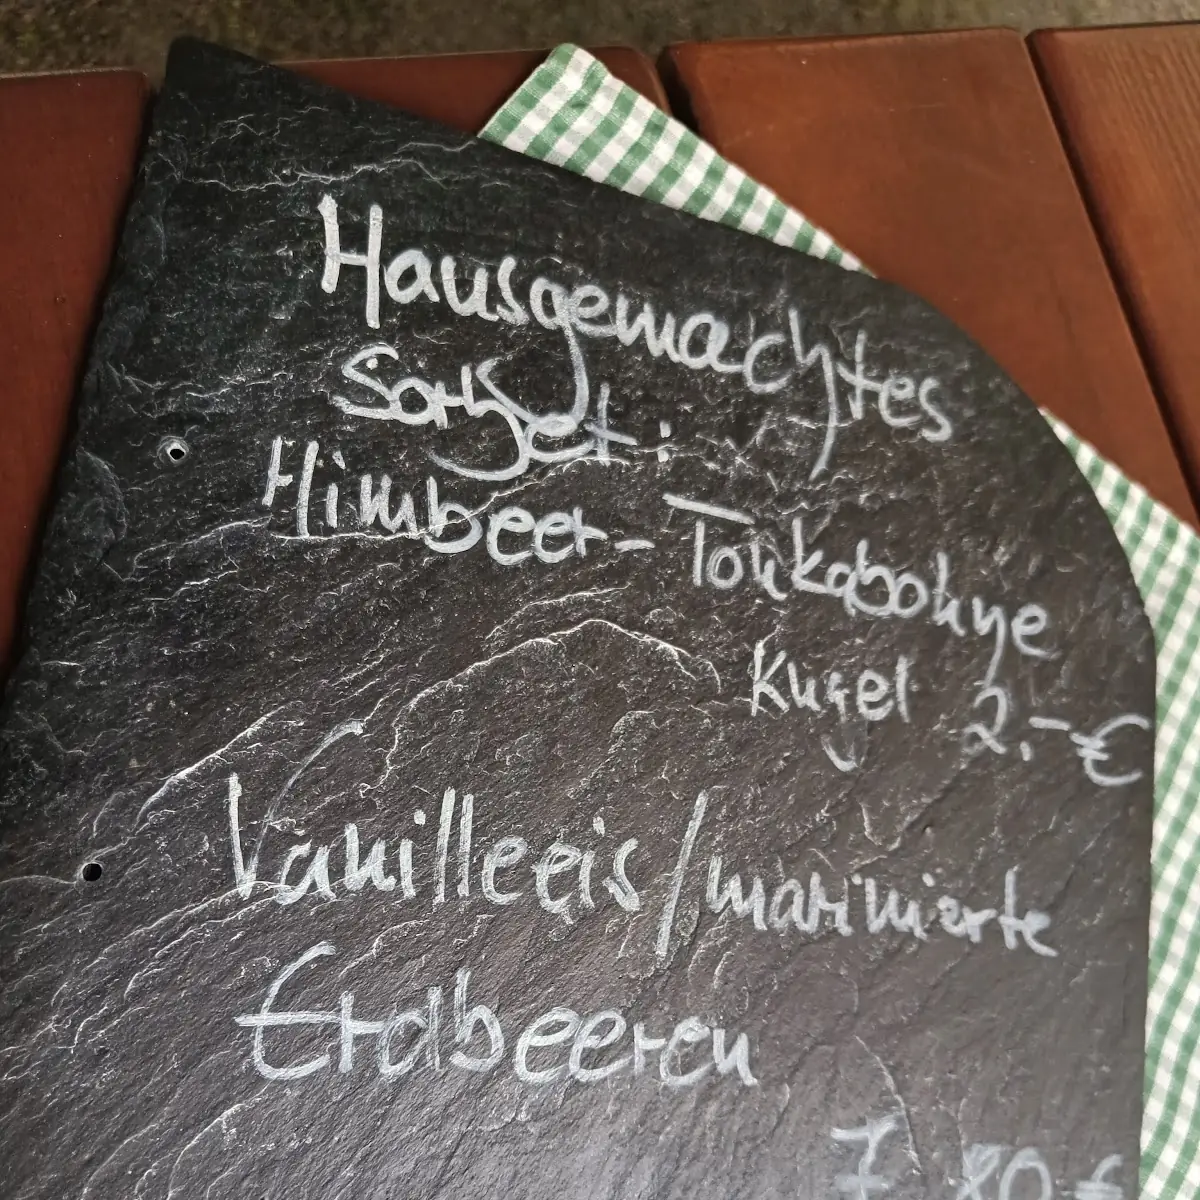 Hausgemachtes
Sorbet:
Himbeer-Tonkabohne
Kugel 2.-€
Vanilleeis/marinierte
Erdbeeren
7,80 €